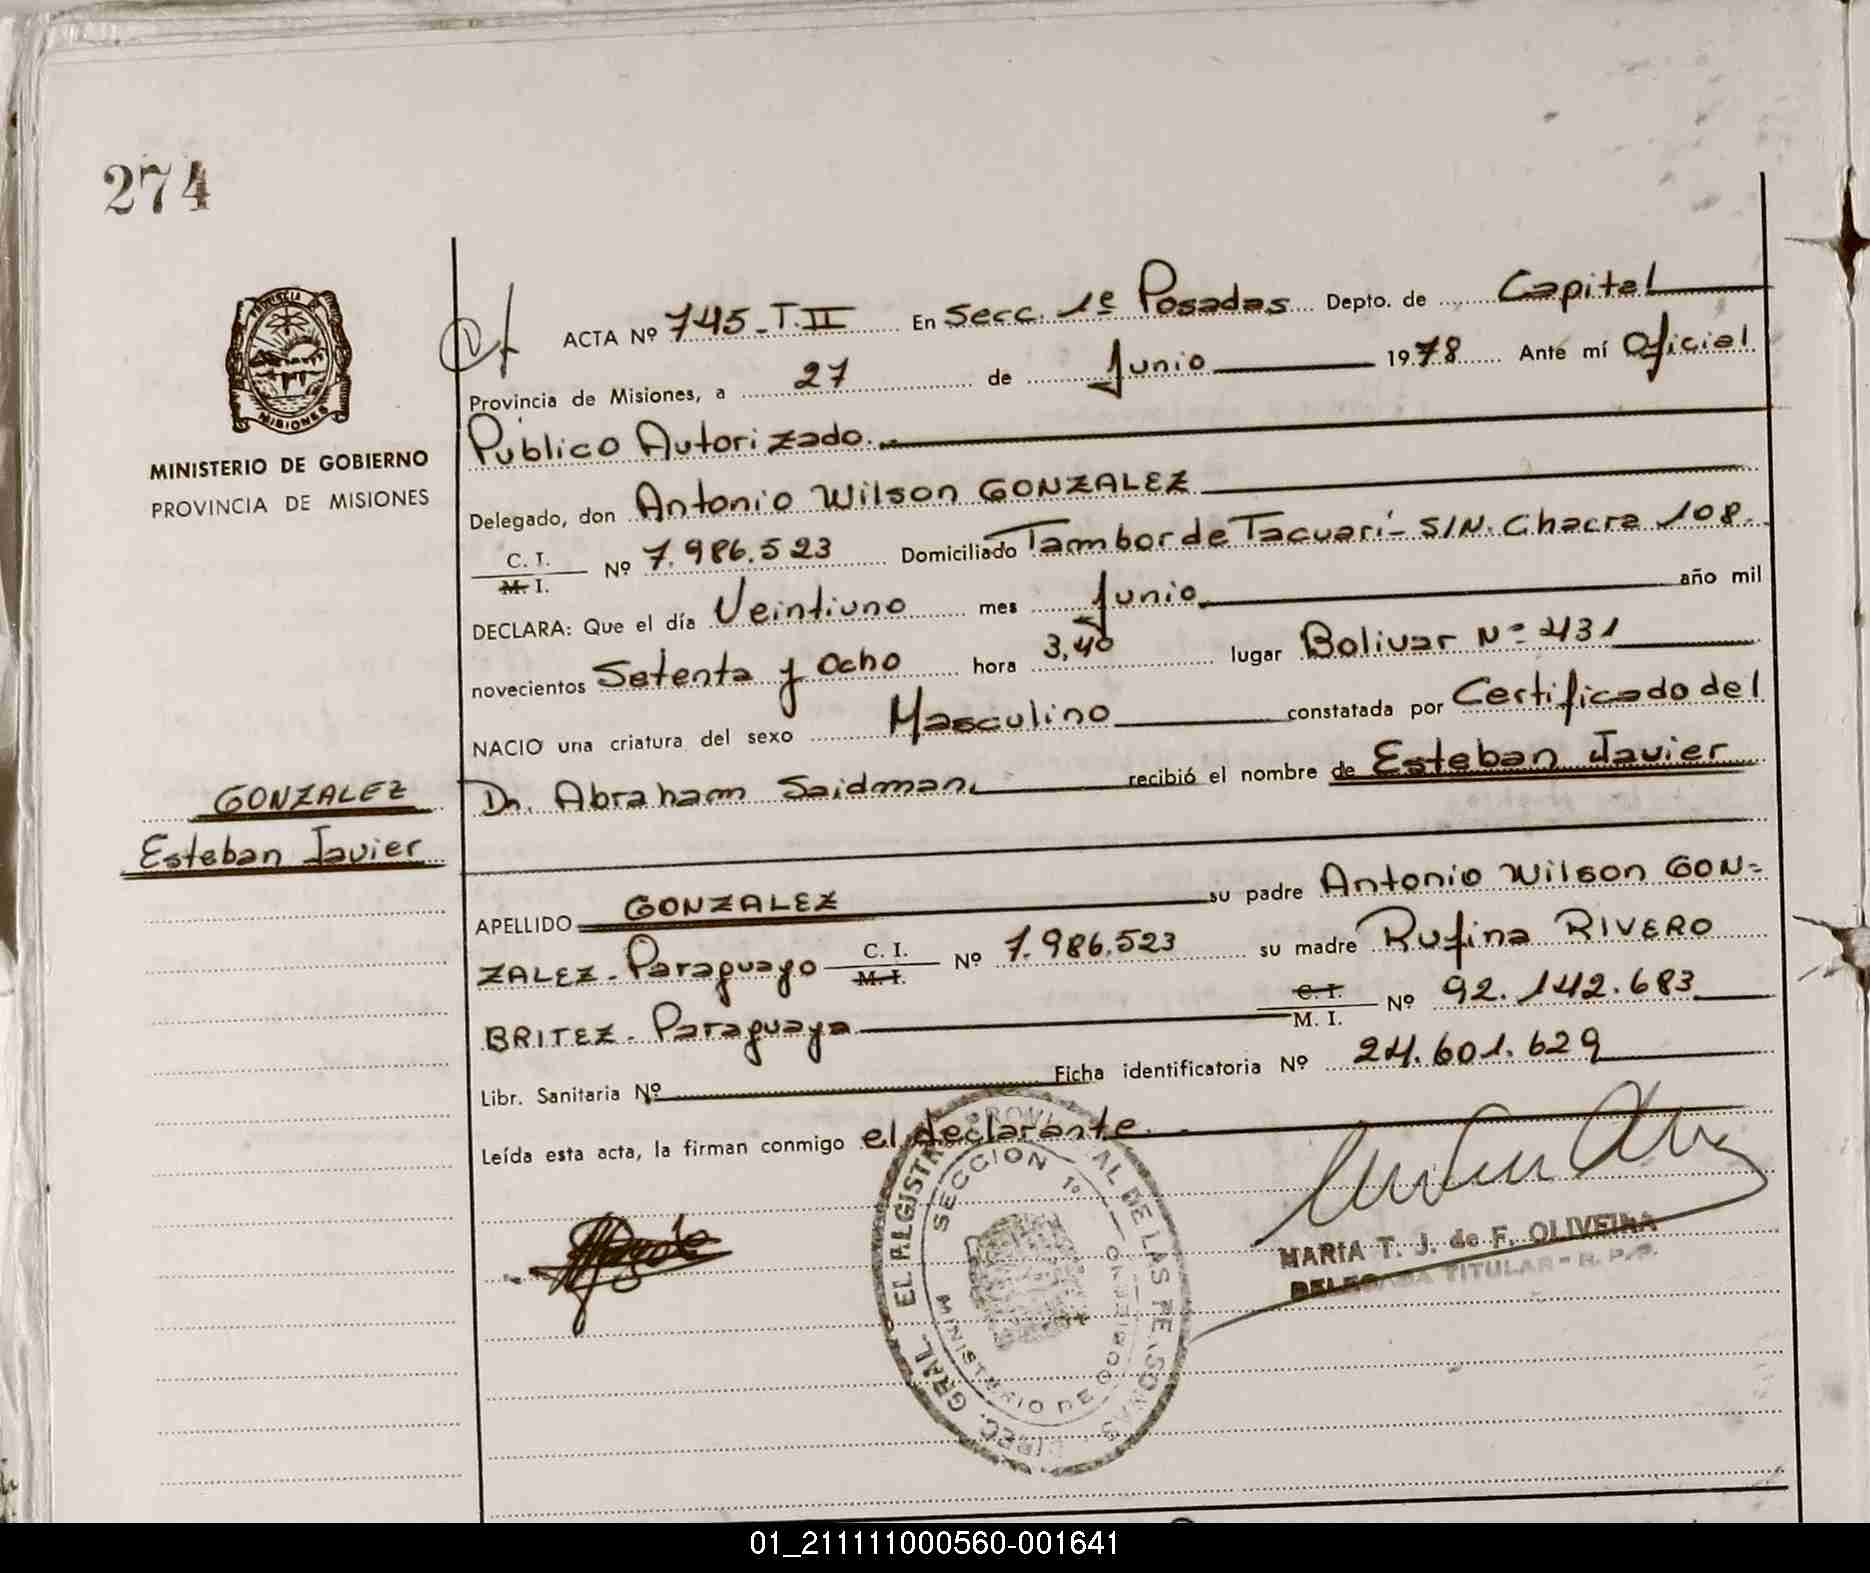 274
PROVINCIA DE
MISIONES
MINISTERIO DE GOBIERNO
PROVINCIA DE MISIONES
ACTA Nº 745-T.II En Secc. 1ª Posadas Depto. de Capital
Provincia de Misiones, a 27 de Junio 1978 Ante mí Oficial
Público Autorizado.-
Delegado, don Antonio Wilson GONZALEZ
C. I. M. I. Nº 7.986.523 Domiciliado Tambor de Tacuarí- S/N. Chacra 108.
DECLARA: Que el día Veintiuno mes Junio año mil
novecientos Setenta y Ocho hora 3,40 lugar Bolivar Nº 431
NACIO una criatura del sexo Masculino constatada por Certificado del
Dr. Abraham Saidman. recibió el nombre de Esteban Javier
GONZALEZ
Esteban Javier
APELLIDO GONZALEZ su padre Antonio Wilson GON=
ZALEZ- Paraguayo C. I. M. I. Nº 7.986.523 su madre Rufina RIVERO
BRITEZ- Paraguaya C. I. M. I. Nº 92.142.683
Libr. Sanitaria Nº Ficha identificatoria Nº 24.601.629
Leída esta acta, la firman conmigo el declarante.-
SECCION 1º
MINISTERIO DE GOBIERNO
MARIA T. J. de F. OLIVEIRA
DELEGADA TITULAR - R. P. P.
01_211111000560-001641